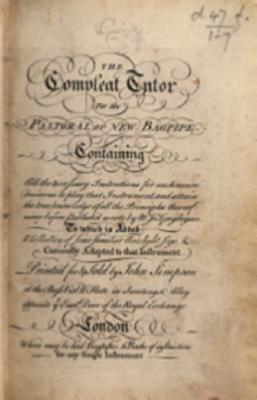 d. 47. f.
1-7
THE
Compleat Tutor
For the
PASTORAL or NEW BAGPIPE
Containing
All the necessary Instructions for such as are
desirous to play that Instrument, and attain
the true knowledge of all the Principles thereof
never before Published wrote by Mr. Jn. Geoghegan
To which is Added
A Collection of some familiar Airs, Jigs &c.
Curiously Adapted to that Instrument
Printed for & Sold by John Simpson
at the Bass Viol & Flute in Sweetings Alley
opposite ye East Door of the Royal Exchange
London
Where may be had Books of instructions
for any Single Instrument